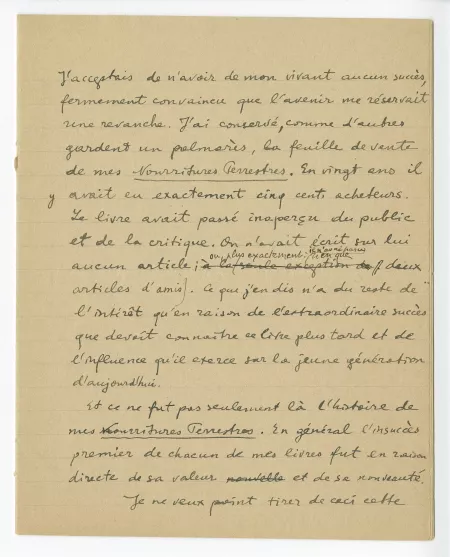 J'acceptais de n'avoir de mon vivant aucun succès,
fermement convaincu que l'avenir me réservait
une revanche. J'ai conservé, comme d'autres
gardent un palmarès, la feuille de vente
de mes Nourritures Terrestres. En vingt ans il
y avait eu exactement cinq cents acheteurs.
Le livre avait passé inaperçu du public
et de la critique. On n'avait écrit sur lui
ou plus exactement: rien que
aucun article; à la seule exception de deux
articles d'amis. Ce que j'en dis n'a du reste
l'intérêt qu'en raison de l'extraordinaire succès
que devait connaître ce livre plus tard et de
l'influence qu'il exerce sur la jeune génération
d'aujourd'hui.
Et ce ne fut pas seulement là l'histoire de
mes Nourritures Terrestres. En général l'insuccès
premier de chacun de mes livres fut en raison
directe de sa valeur nouvelle et de sa nouveauté.
Je ne veux point tirer de ceci cette